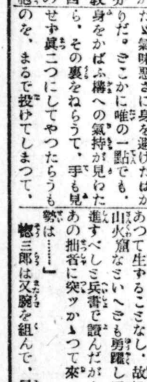 たゞ氣味惡さに身を避けたばか
りだ。どこかに唯の一點でも、
身をかばふ構への氣持が見わた
ら、その裏をねらうて、手も見
せず眞二つにしてやつたらうも
のを、まるで投げてしまつて、
あつて生することなし、故
山火窟なといへども勇躍し
進すべしと兵書で讀んだが
あの拙者に突ッかゝつて來
勢は……」
惣三郎は又腕を組んで、